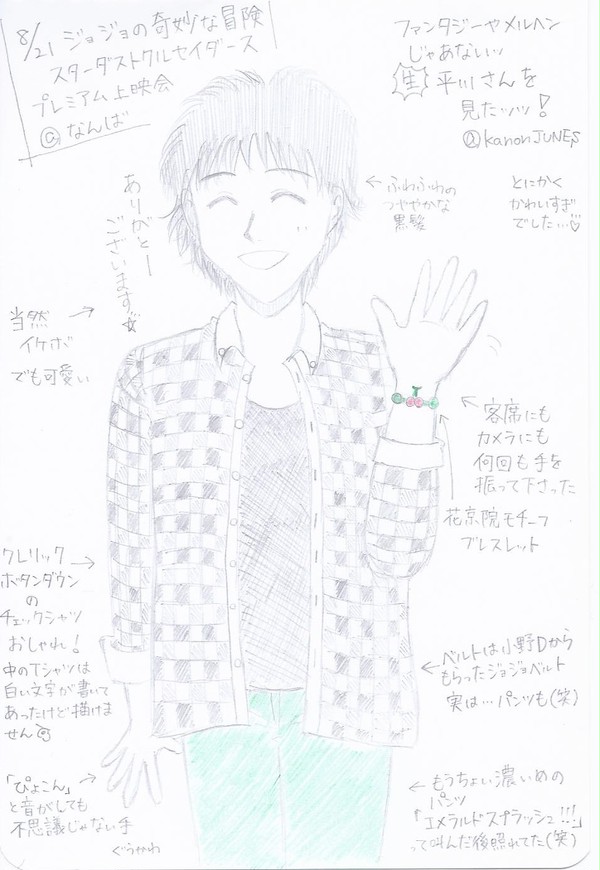 8/21 ジョジョの奇妙な冒険
スターダストクルセイダース
プレミアム上映会
@なんば
ファンタジーやメルヘン
じゃあないッ
生 平川さんを
見たッッッ!
@kanonJUNES
← ふわふわの
つややかな
黒髪
とにかく
かわいすぎ
でした…♡
ありがとー
ございます☆
当然 →
イケボ
でも可愛い
← 客席にも
カメラにも
何回も手を
振って下さった
花京院モチーフ
ブレスレット
クレリック →
ボタンダウン
の
チェックシャツ
おしゃれ!
中のTシャツは
白い文字が書いて
あったけど描けま
せん
← ベルトは小野Dから
もらったジョジョベルト
実は…パンツも(笑)
「ぴょこん」 →
と音がしても
不思議じゃない手
← もうちょい濃いめの
パンツ
「エメラルドスプラッシュ!!!」
って叫んだ後照れてた(笑)